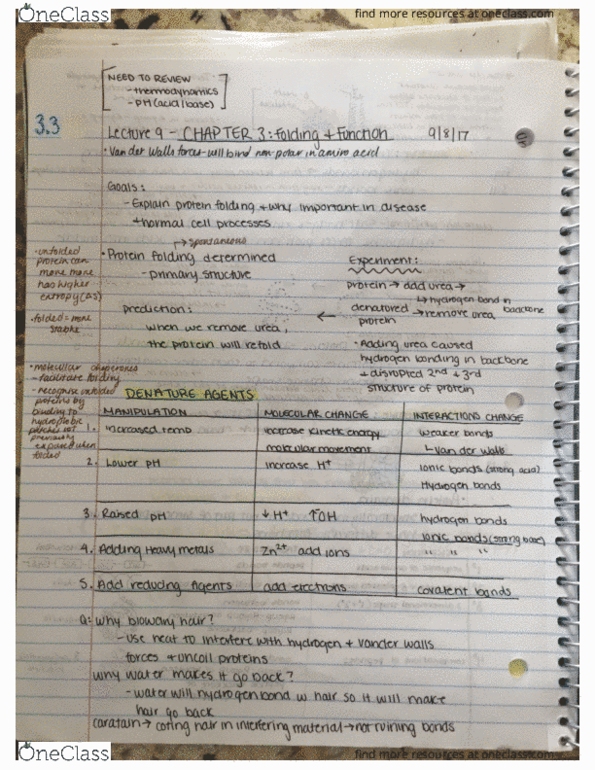 OneClass
find more resources at oneclass.com
NEED TO REVIEW
-thermodynamics
-pH (acid/base)
3.3
Lecture 9 - CHAPTER 3: Folding + Function 9/8/17
•Van der Walls forces-will bind non-polar in amino acid
Goals:
-Explain protein folding + why important in disease
+ normal cell processes
→ spontaneous
•Protein folding determined
-primary structure
prediction:
when we remove urea,
the protein will refold
Experiment:
protein → add urea →
↳ hydrogen bond in backbone
← denatured → remove urea
protein
•Adding urea caused
hydrogen bonding in backbone
+ disrupted 2nd + 3rd
structure of protein
•unfolded
protein can
move more
has higher
entropy (ΔS)
•folded = more
stable
•molecular chaperones
-facilitate folding
-recognize unfolded
proteins by
binding to
hydrophobic
patches not
previously
exposed when
folded
DENATURE AGENTS
MANIPULATION MOLECULAR CHANGE INTERACTIONS CHANGE
1. increased temp increase kinetic energy weaker bonds
molecular movement ↳Van der Walls
2. Lower pH increase H+ Ionic bonds (strong acid)
Hydrogen bonds
3. Raised pH ↓ H+ ↑OH hydrogen bonds
Ionic bonds (strong base)
4. Adding Heavy metals Zn2+ add ions " " "
5. Add reducing Agents add electrons Covalent bonds
Q: Why blowdry hair?
-use heat to interfere with hydrogen + vander walls
forces + uncoil proteins
why water makes it go back?
-water will hydrogen bond w hair so it will make
hair go back
caratain → coting hair in interfering material → not ruining bonds
OneClass
find more resources at oneclass.com